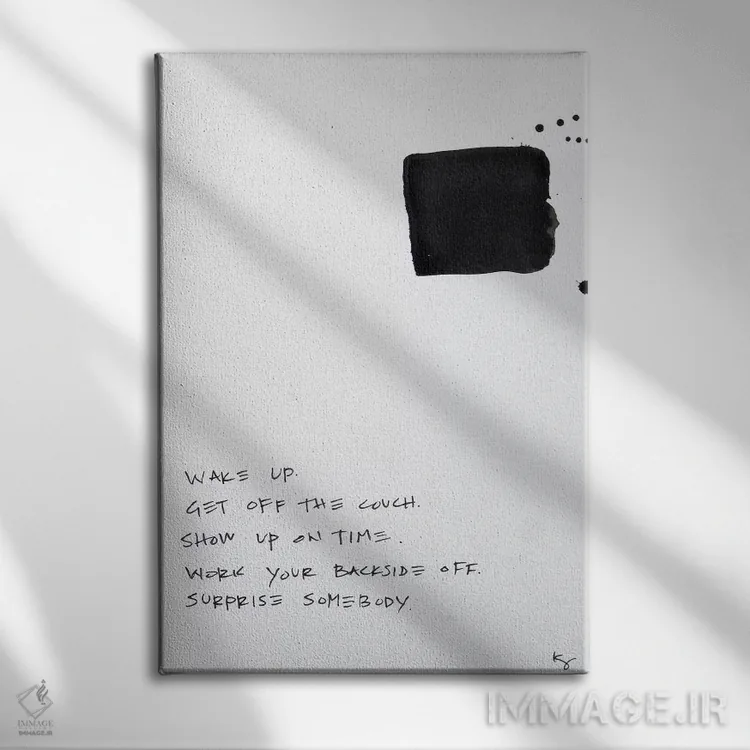 WAKE UP.
GET OFF THE COUCH.
SHOW UP ON TIME.
WORK YOUR BACKSIDE OFF.
SURPRISE SOMEBODY.
IMMAGE
IMMAGE.IR
IMMAGE.IR